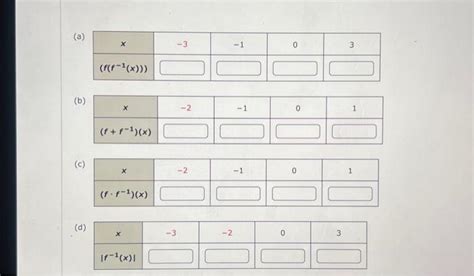 (a)
x -3 -1 0 3
(f(f⁻¹(x)))
(b)
x -2 -1 0 1
(f + f⁻¹)(x)
(c)
x -2 -1 0 1
(f · f⁻¹)(x)
(d)
x -3 -2 0 3
|f⁻¹(x)|